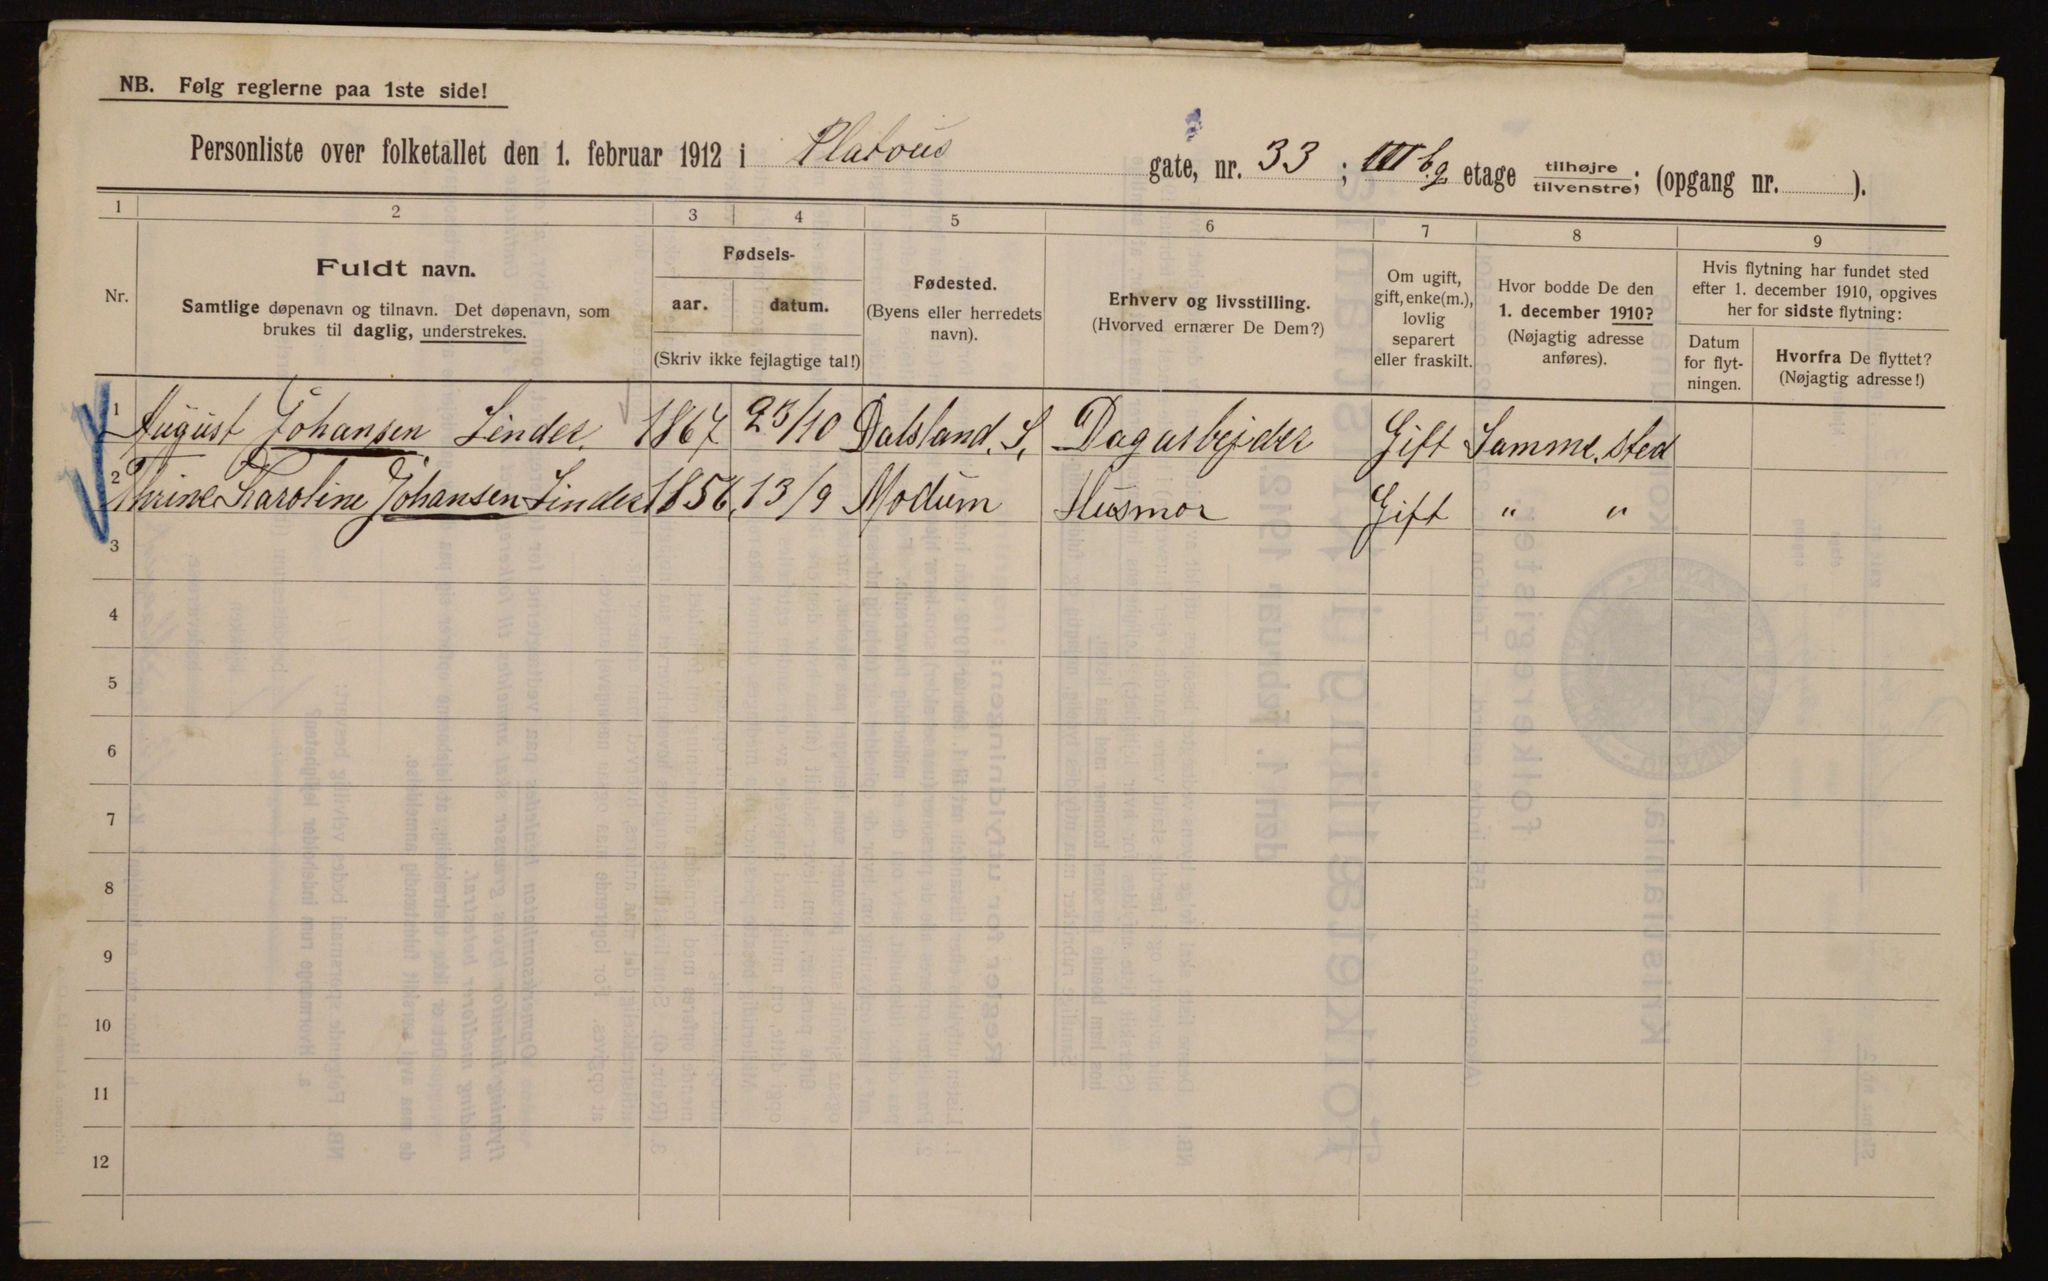 NB. Følg reglerne paa 1ste side!
Personliste over folketallet den 1. februar 1912 i Platous gate, nr. 33; III bg etage tilhøjre/tilvenstre; (opgang nr. ).
1 2 3 4 5 6 7 8 9
Nr.
Fuldt navn.
Samtlige døpenavn og tilnavn. Det døpenavn, som
brukes til daglig, understrekes.
Fødsels-
aar. datum.
(Skriv ikke fejlagtige tal!)
Fødested.
(Byens eller herredets
navn).
Erhverv og livsstilling.
(Hvorved ernærer De Dem?)
Om ugift,
gift, enke(m.),
lovlig
separert
eller fraskilt.
Hvor bodde De den
1. december 1910?
(Nøjagtig adresse
anføres).
Hvis flytning har fundet sted
efter 1. december 1910, opgives
her for sidste flytning:
Datum
for flyt-
ningen.
Hvorfra De flyttet?
(Nøjagtig adresse!)
1 August Johansen Linder. 1867 23/10 Dalsland. S. Dagarbejder Gift Samme. sted
2 Thrine Karoline Johansen Linder 1856. 13/9 Modum Husmor Gift " "
3
4
5
6
7
8
9
10
11
12